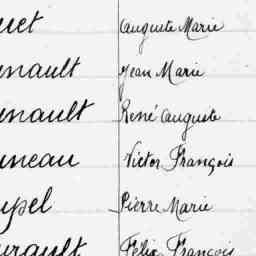 uet Auguste Marie
enault Jean Marie
enault René Auguste
uneau Victor François
upel Pierre Marie
urault Félix François